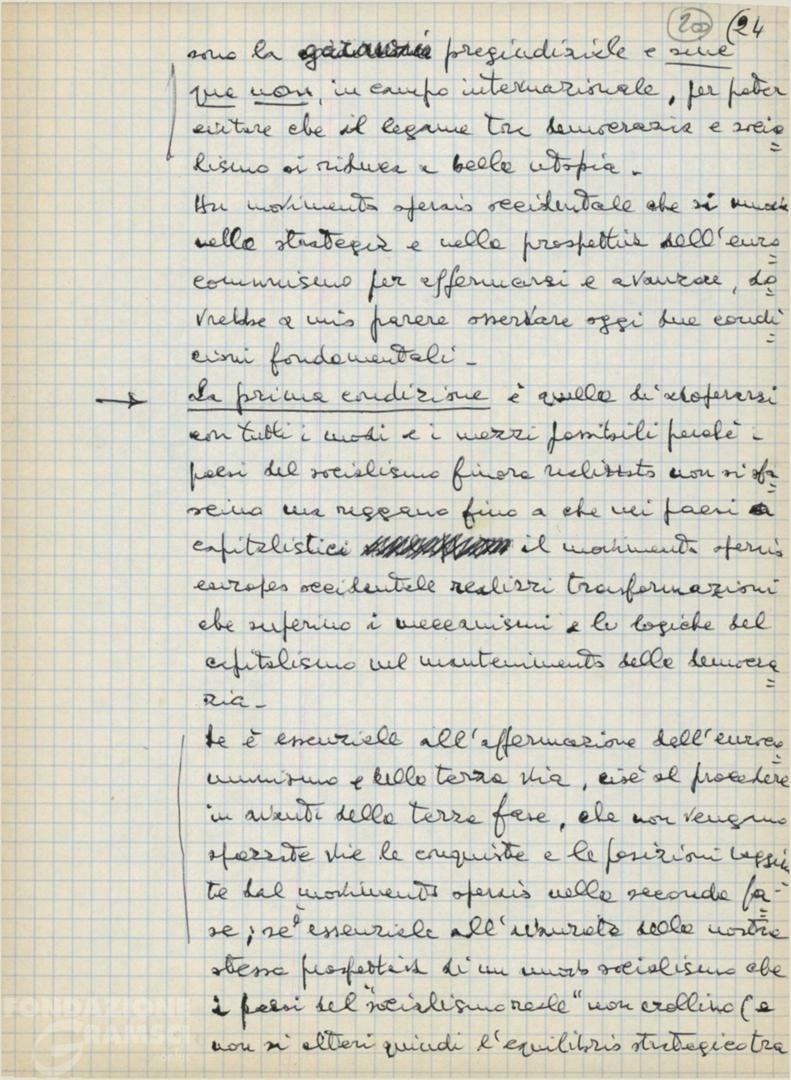 20 (24
sono la garanzia pregiudiziale e sine
qua non, in campo internazionale, per poter
evitare che il legame tra democrazia e socia
lismo si riduca a bella utopia.
Un movimento operaio occidentale che si muova
nella strategia e nella prospettiva dell'euro
comunismo per affermarsi e avanzare, do
vrebbe a mio parere osservare oggi due condi
zioni fondamentali.
→ La prima condizione è quella di adoperarsi
con tutti i modi e i mezzi possibili perché i
paesi del socialismo finora realizzato non si sfa
scino ma reggano fino a che nei paesi
capitalistici il movimento operaio
europeo occidentale realizzi trasformazioni
che superino i meccanismi e le logiche del
capitalismo nel mantenimento della democra
zia.
Se è essenziale all'affermazione dell'euroco
munismo e della terza via, cioè al procedere
in avanti della terza fase, che non vengano
spazzate via le conquiste e le posizioni raggiun
te dal movimento operaio nella seconda fa
se; se è essenziale all'avanzata della nostra
stessa prospettiva di un nuovo socialismo che
i paesi del "socialismo reale" non crollino (e
non si alteri quindi l'equilibrio strategico tra
FONDAZIONE
GRAMSCI